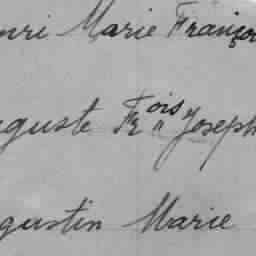 nri Marie Françoi
guste Fr^ois Joseph
gustin Marie